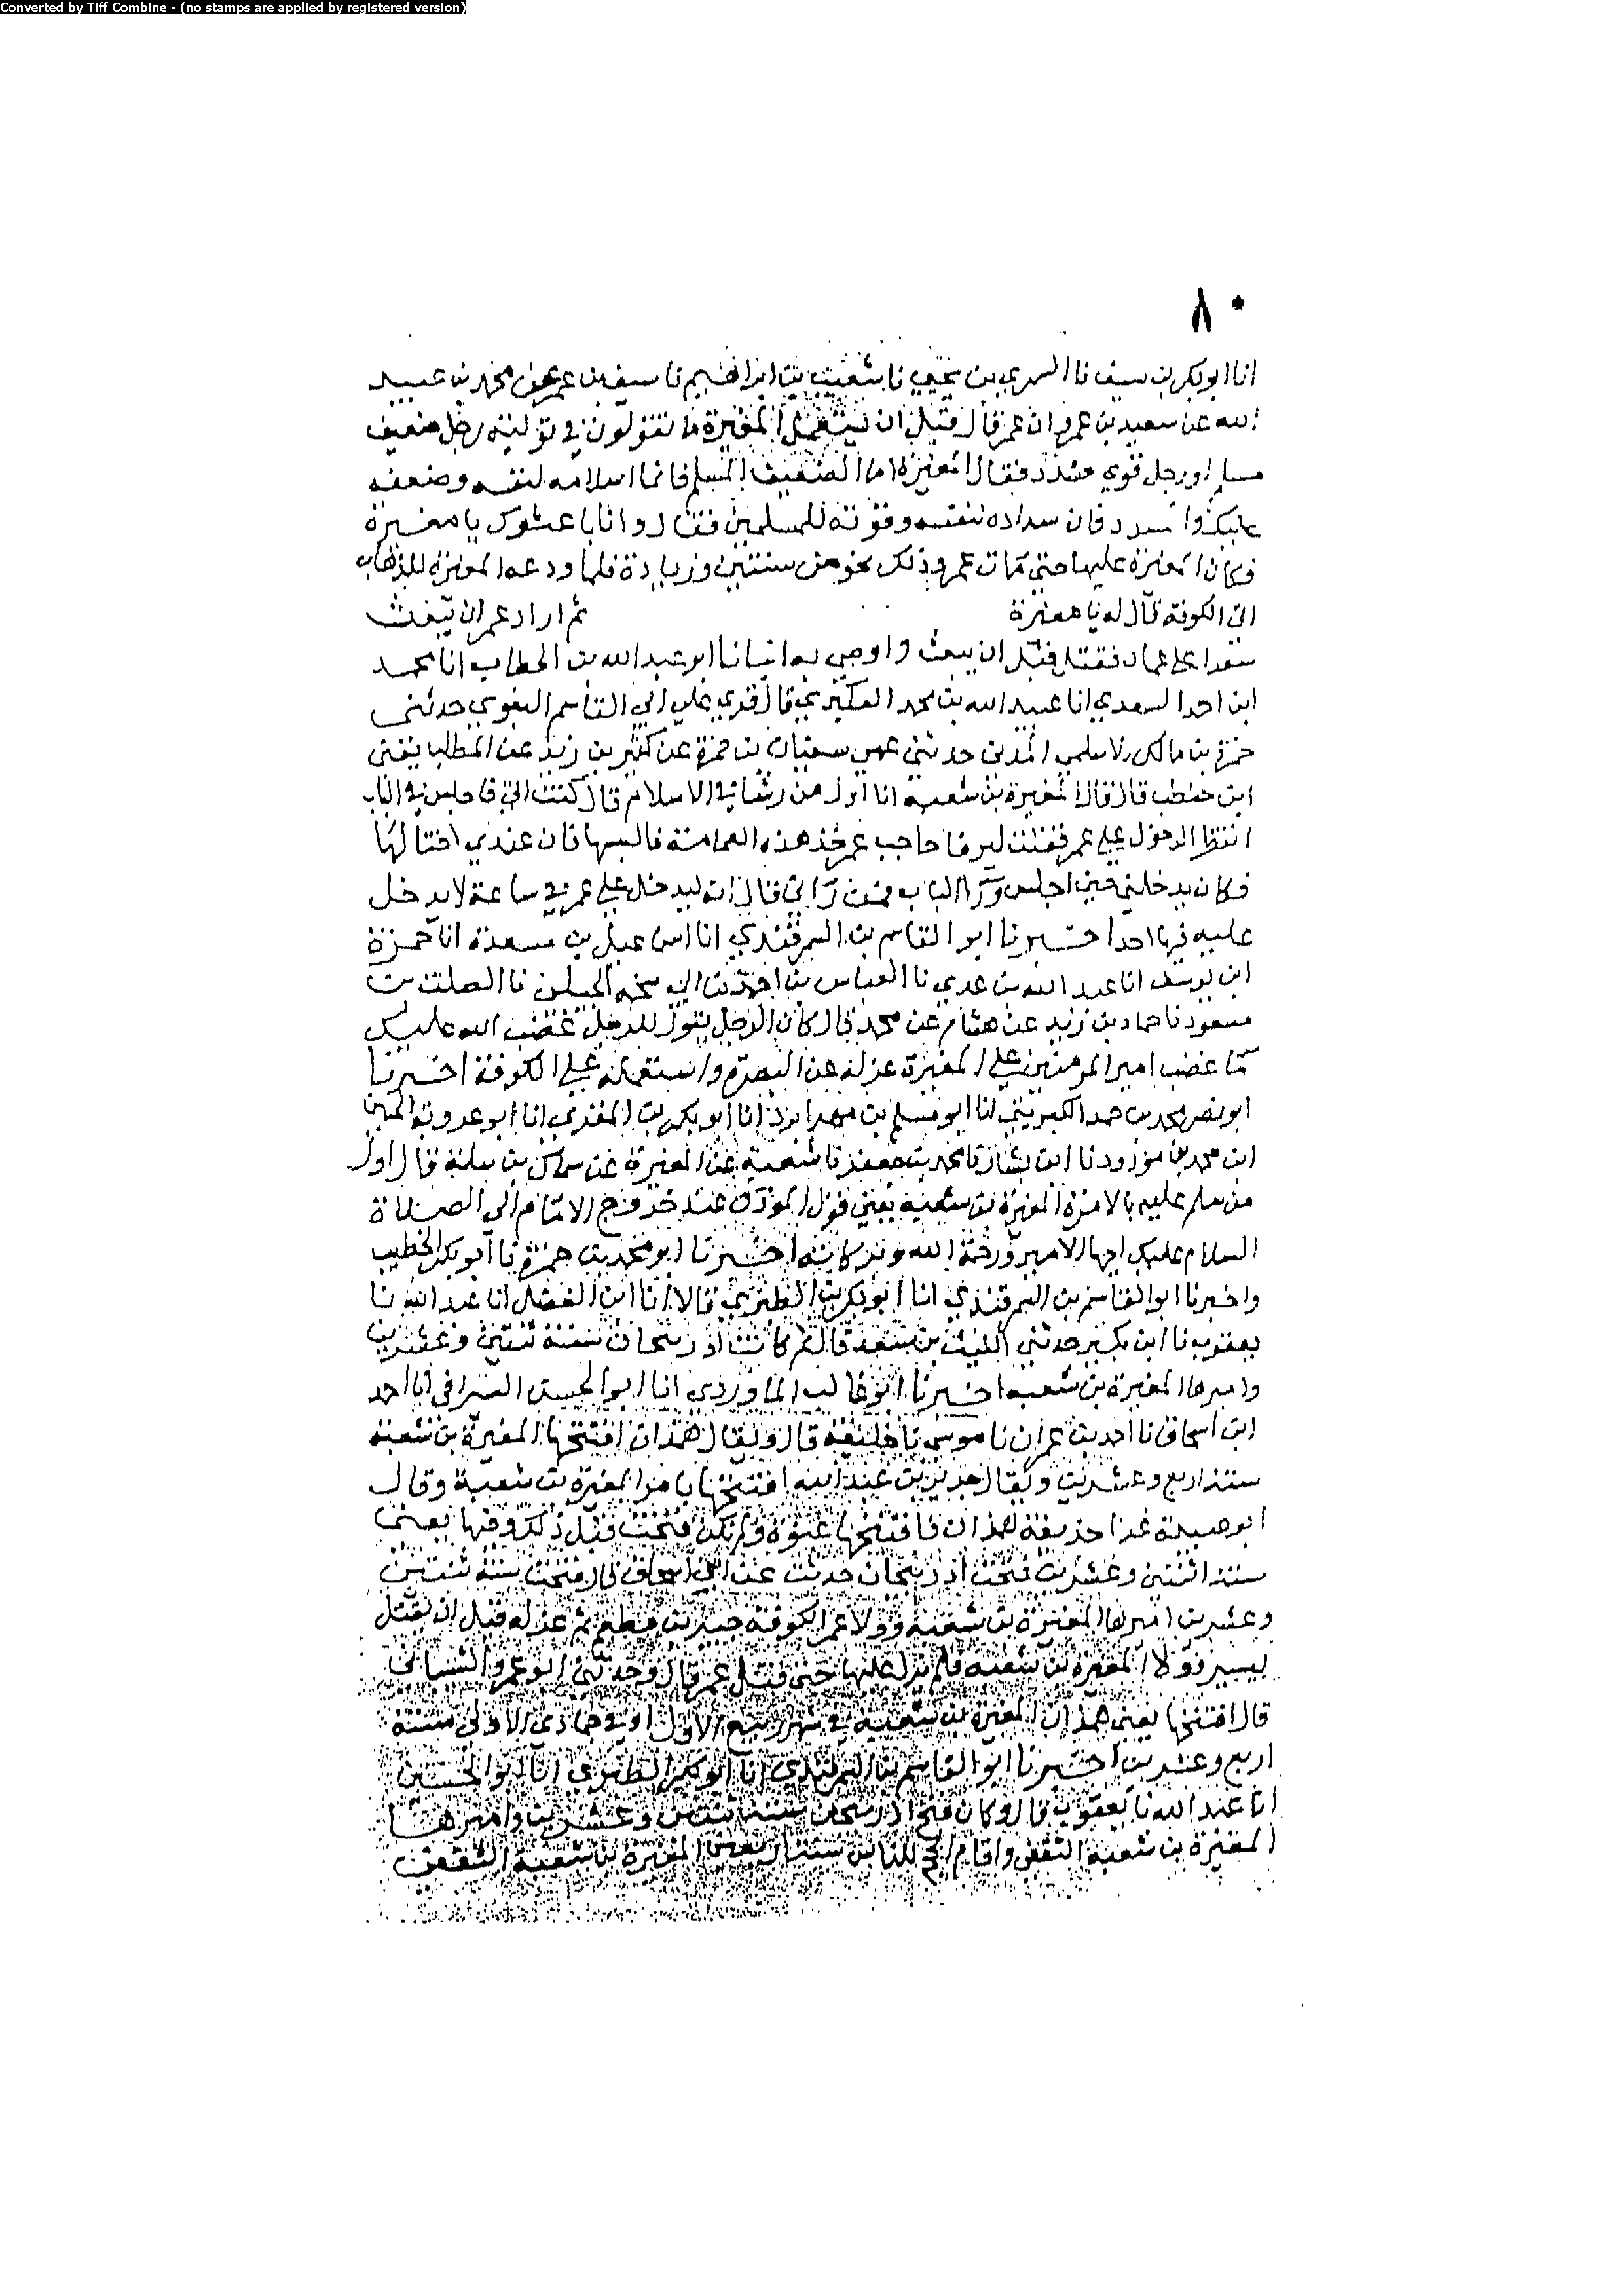 Converted by Tiff Combine - (no stamps are applied by registered version)
٨٠
انا ابو بكر بن سيف نا السري بن يحيي نا شعيب بن ابراهيم نا سيف بن عمر عن محمد بن عبيد
الله عن سعيد بن عمرو ان عمر قال قبل ان يستعمل المغيرة ما تقولون في تولية رجل ضعيف
مسلم او رجل قوي مشدد فقال المغيرة اما الضعيف المسلم فانما اسلامه لنفسه وضعفه
عليك واما المشدد فان سداده لنفسه وقوته للمسلمين فقال وانا باعثوك يا مغيرة
فكان المغيرة عليها حتي مات عمر وذلك نحو من سنتين وزيادة فلما ودعه المغيرة للذهاب
الى الكوفة قال له يا مغيرة ثم اراد عمر ان يبعث
سعدا على عمله فقتل قبل ان يبعثه واوصي به انبانا ابو عبد الله بن الحطاب انا محمد
ابن احمد السعدي انا عبيد الله بن محمد العكبري قال قري على ابي القاسم البغوي حدثني
حمزة بن مالك الاسلمي المدني حدثني عمي سفيان بن حمزة عن كثير بن زيد عن المطلب يعني
ابن حنطب قال قال المغيرة بن شعبة انا اول من رشا في الاسلام قال كنت اتي فاجلس في الباب
انتظر الدخول على عمر فقلت ليرفا حاجب عمر خذ هذه العمامة فالبسها فان عندي اختا لها
فكان يدخلني حين اجلس ورا الباب فمن راني قال انه ليدخل على عمر في ساعة لا يدخل
عليه فيها احد اخبرنا ابو القاسم بن السمرقندي انا اسماعيل بن مسعدة انا حمزة
ابن يوسف انا عبد الله بن عدي نا العباس بن احمد بن ابي الجبلي نا الصلت بن
مسعود نا حماد بن زيد عن هشام عن محمد قال كان الرجل يقول للرجل غضب الله عليك
كما غضب امير المومنين على المغيرة عزله عن البصرة واستعمله على الكوفة اخبرنا
ابو نصر محمد بن حمد الكبريتي انا ابو مسلم بن مهرابزد انا ابو بكر بن المقري انا ابو عروبة الحسين
ابن محمد بن مودود نا ابن بشار نا محمد بن جعفر نا شعبة عن المغيرة عن سماك بن سلمة قال اول
من سلم عليه بالامرة المغيرة بن شعبة يعني قول الموذن عند خروج الامام الى الصلاة
السلام عليك ايها الامير ورحمة الله وبركاته اخبرنا ابو محمد بن حمزة نا ابو بكر الخطيب
واخبرنا ابو القاسم بن السمرقندي انا ابو بكر بن الطبري قالا انا ابن الفضل انا عبد الله نا
يعقوب نا ابن بكير حدثني الليث بن سعد قال ثم كانت اذربيجان سنة ثنتين وعشرين
واميرها المغيرة بن شعبة اخبرنا ابو غالب الماوردي انا ابو الحسن السيرافي انا احمد
ابن اسحاق نا احمد بن عمران نا موسى نا خليفة قال ويقال همذان افتتحها المغيرة بن شعبة
سنة اربع وعشرين ويقال جرير بن عبد الله افتتحها بامر المغيرة بن شعبة وقال
ابو عبيدة غزا حذيفة همذان فافتتحها عنوة ولم تكن فتحت قبل ذلك وفيها يعني
سنة اثنتين وعشرين فتحت اذربيجان حدثت عن ابن اسحاق قال فتحت سنة ثنتين
وعشرين اميرها المغيرة بن شعبة وولا عمر الكوفة جبير بن مطعم ثم عزله قبل ان يقتل
بيسير وولا المغيرة بن شعبة فلم يزل عليها حتى قتل عمر قال وحدثني ابو عمرو الشيباني
قال افتتحها يعني همذان المغيرة بن شعبة في شهر ربيع الاول او في جمادي الاولى سنة
اربع وعشرين اخبرنا ابو القاسم بن السمرقندي انا ابو بكر الطبري انا ابو الحسين
انا عبد الله نا يعقوب قال وكان فتح اذربيجان سنة ثنتين وعشرين واميرها
المغيرة بن شعبة الثقفي واقام الحج للناس سنة اربعين المغيرة بن شعبة الثقفي